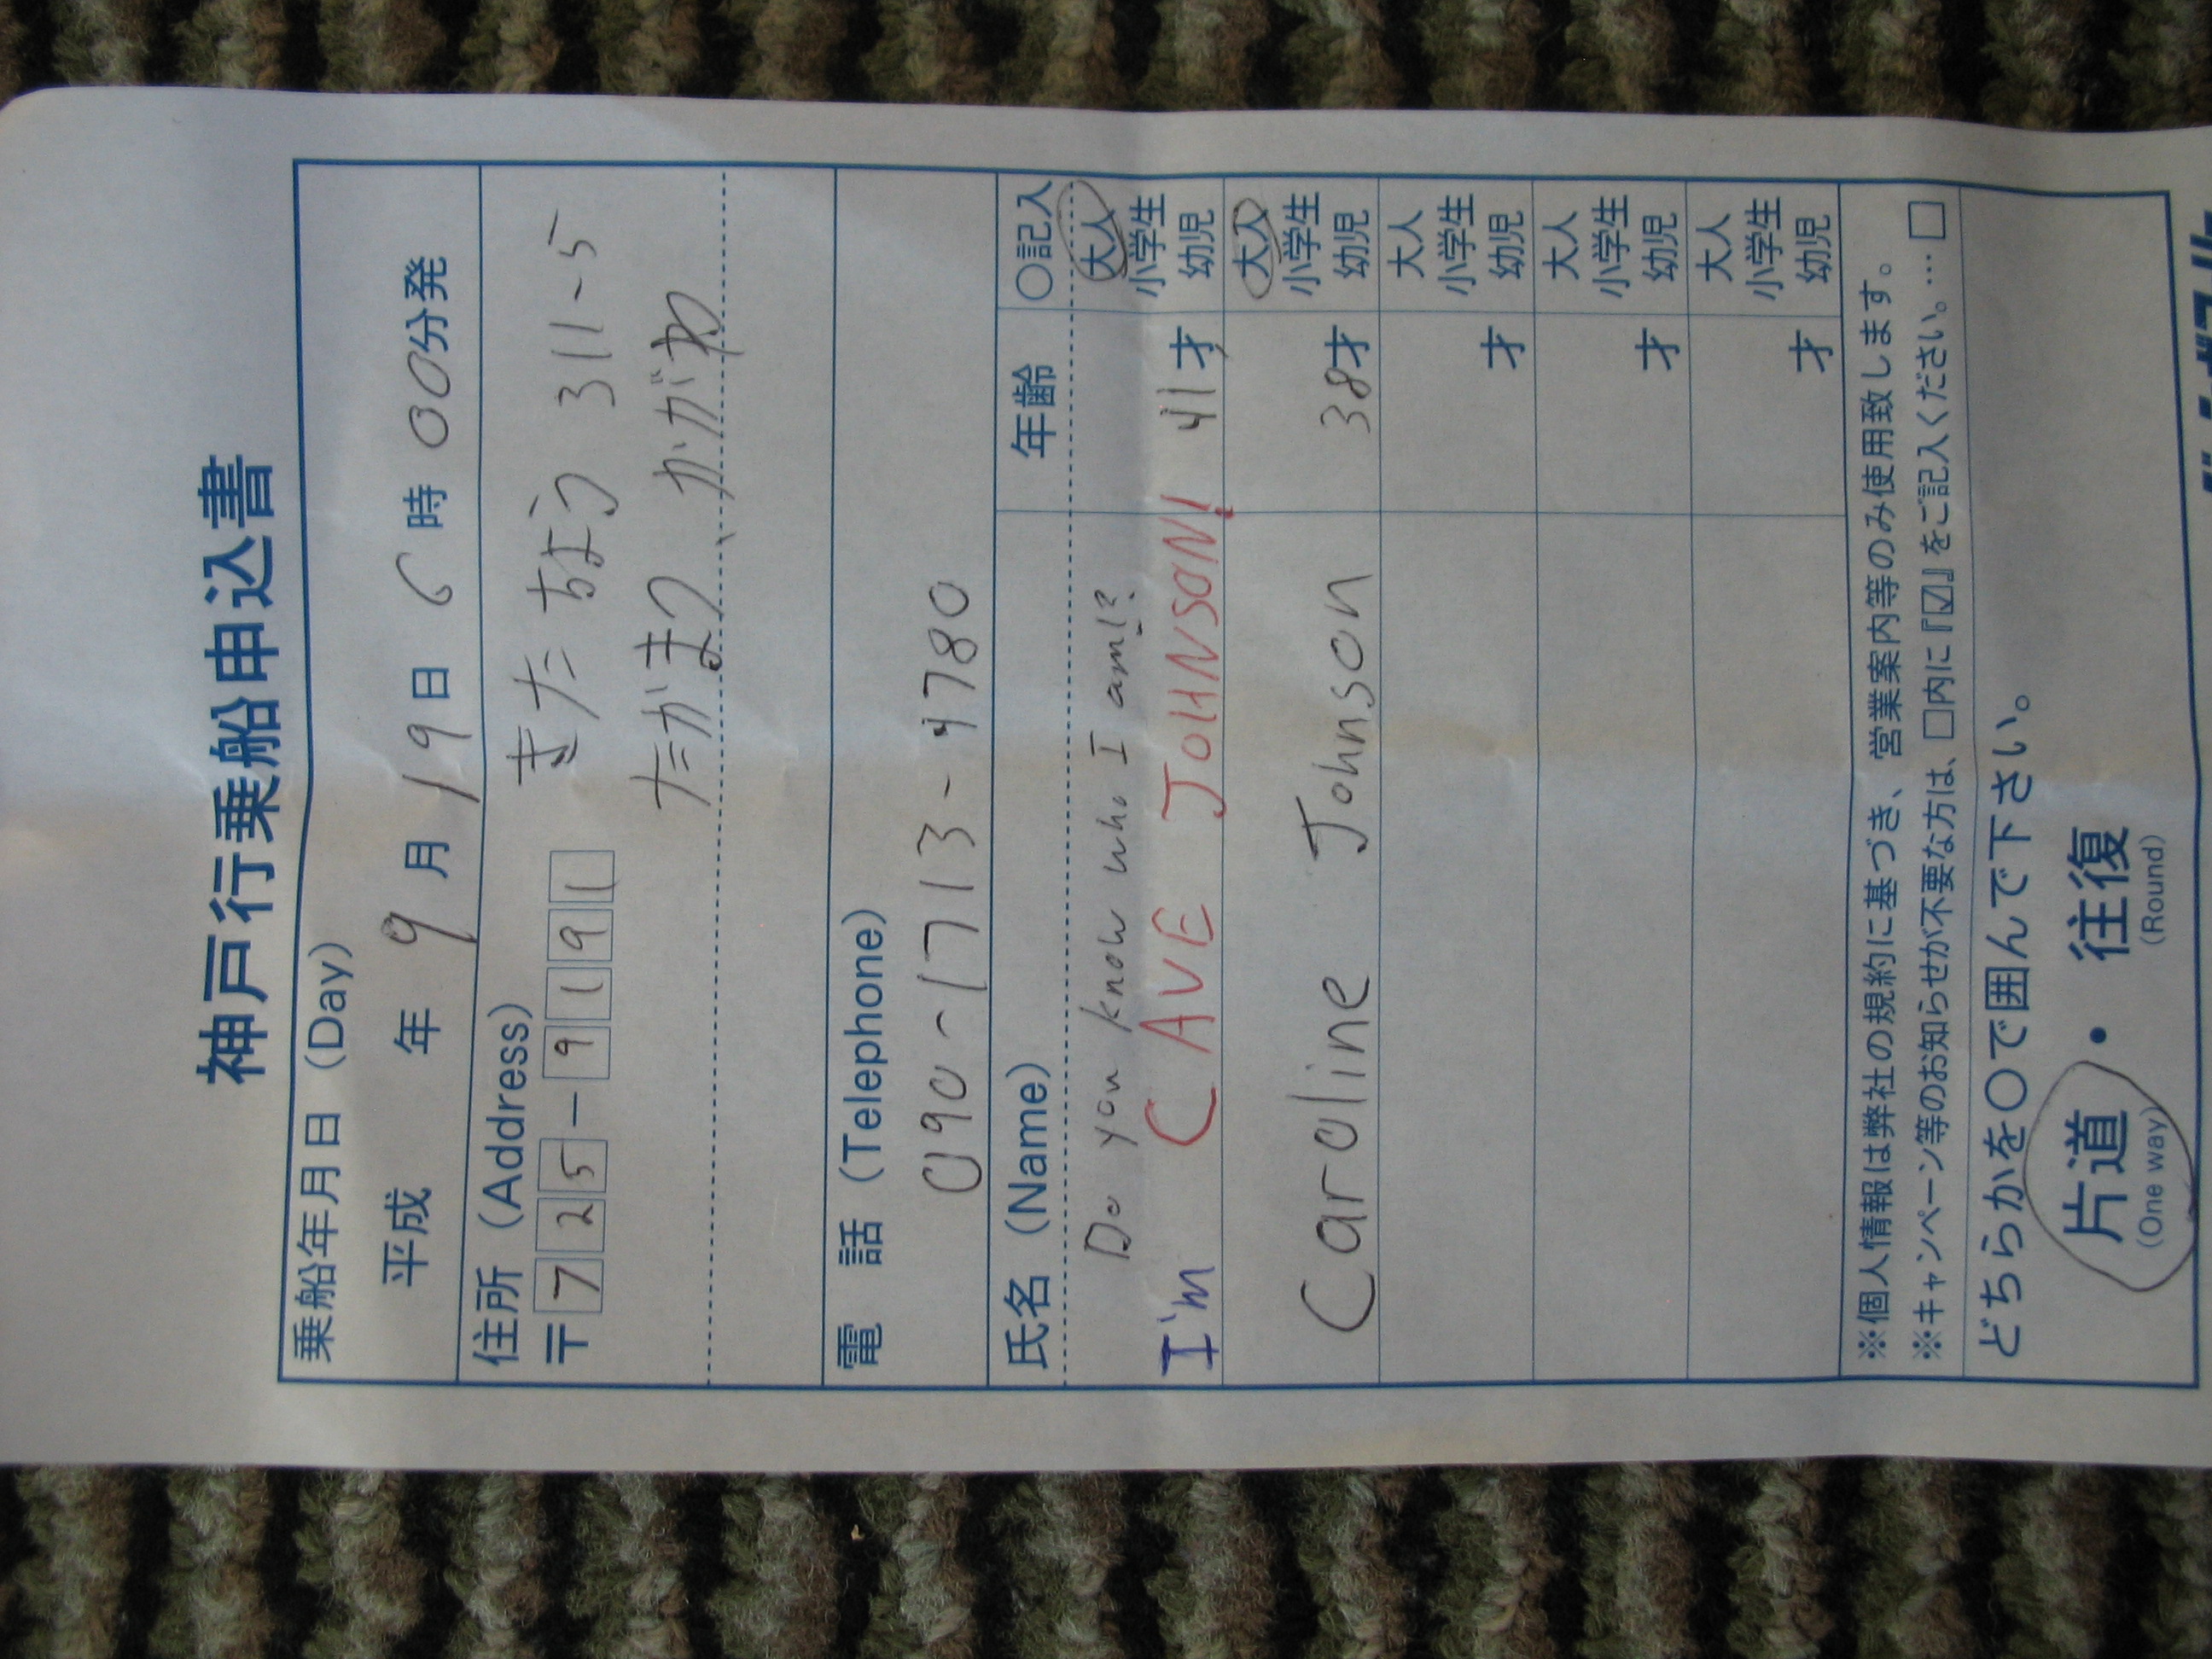 神戸行乗船申込書
乗船年月日 (Day)
平成 年 9 月 19 日 6 時 00 分発
住所 (Address)
〒725-9191 きたちょう 311-5
たかまつ、かがわ
電 話 (Telephone)
090-1713-4780
氏名 (Name) 年齢 〇記入
Do you know who I am!?
I'm CAVE JOHNSON! 41才 大人 小学生 幼児
Caroline Johnson 38才 大人 小学生 幼児
才 大人 小学生 幼児
才 大人 小学生 幼児
才 大人 小学生 幼児
※個人情報は弊社の規約に基づき、営業案内等のみ使用致します。
※キャンペーン等のお知らせが不要な方は、□内に『☑』をご記入ください。…□
どちらかを〇で囲んで下さい。
片道 ・ 往復
(One way) (Round)